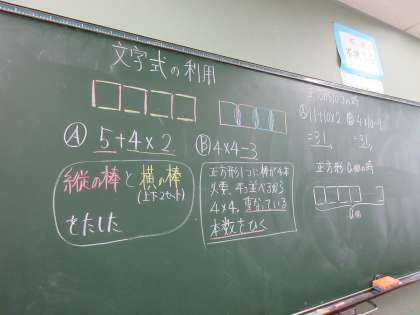 文字式の利用
Ⓐ 5+4×2
縦の棒と横の棒
(上下2セット)
をたした
Ⓑ 4×4-3
正方形1つに棒が4本
必要、4つ並べるから
4×4、重なっている
本数をひく
Ⓐ 11+10×2
=31
=31
正方形 a個の時
a個